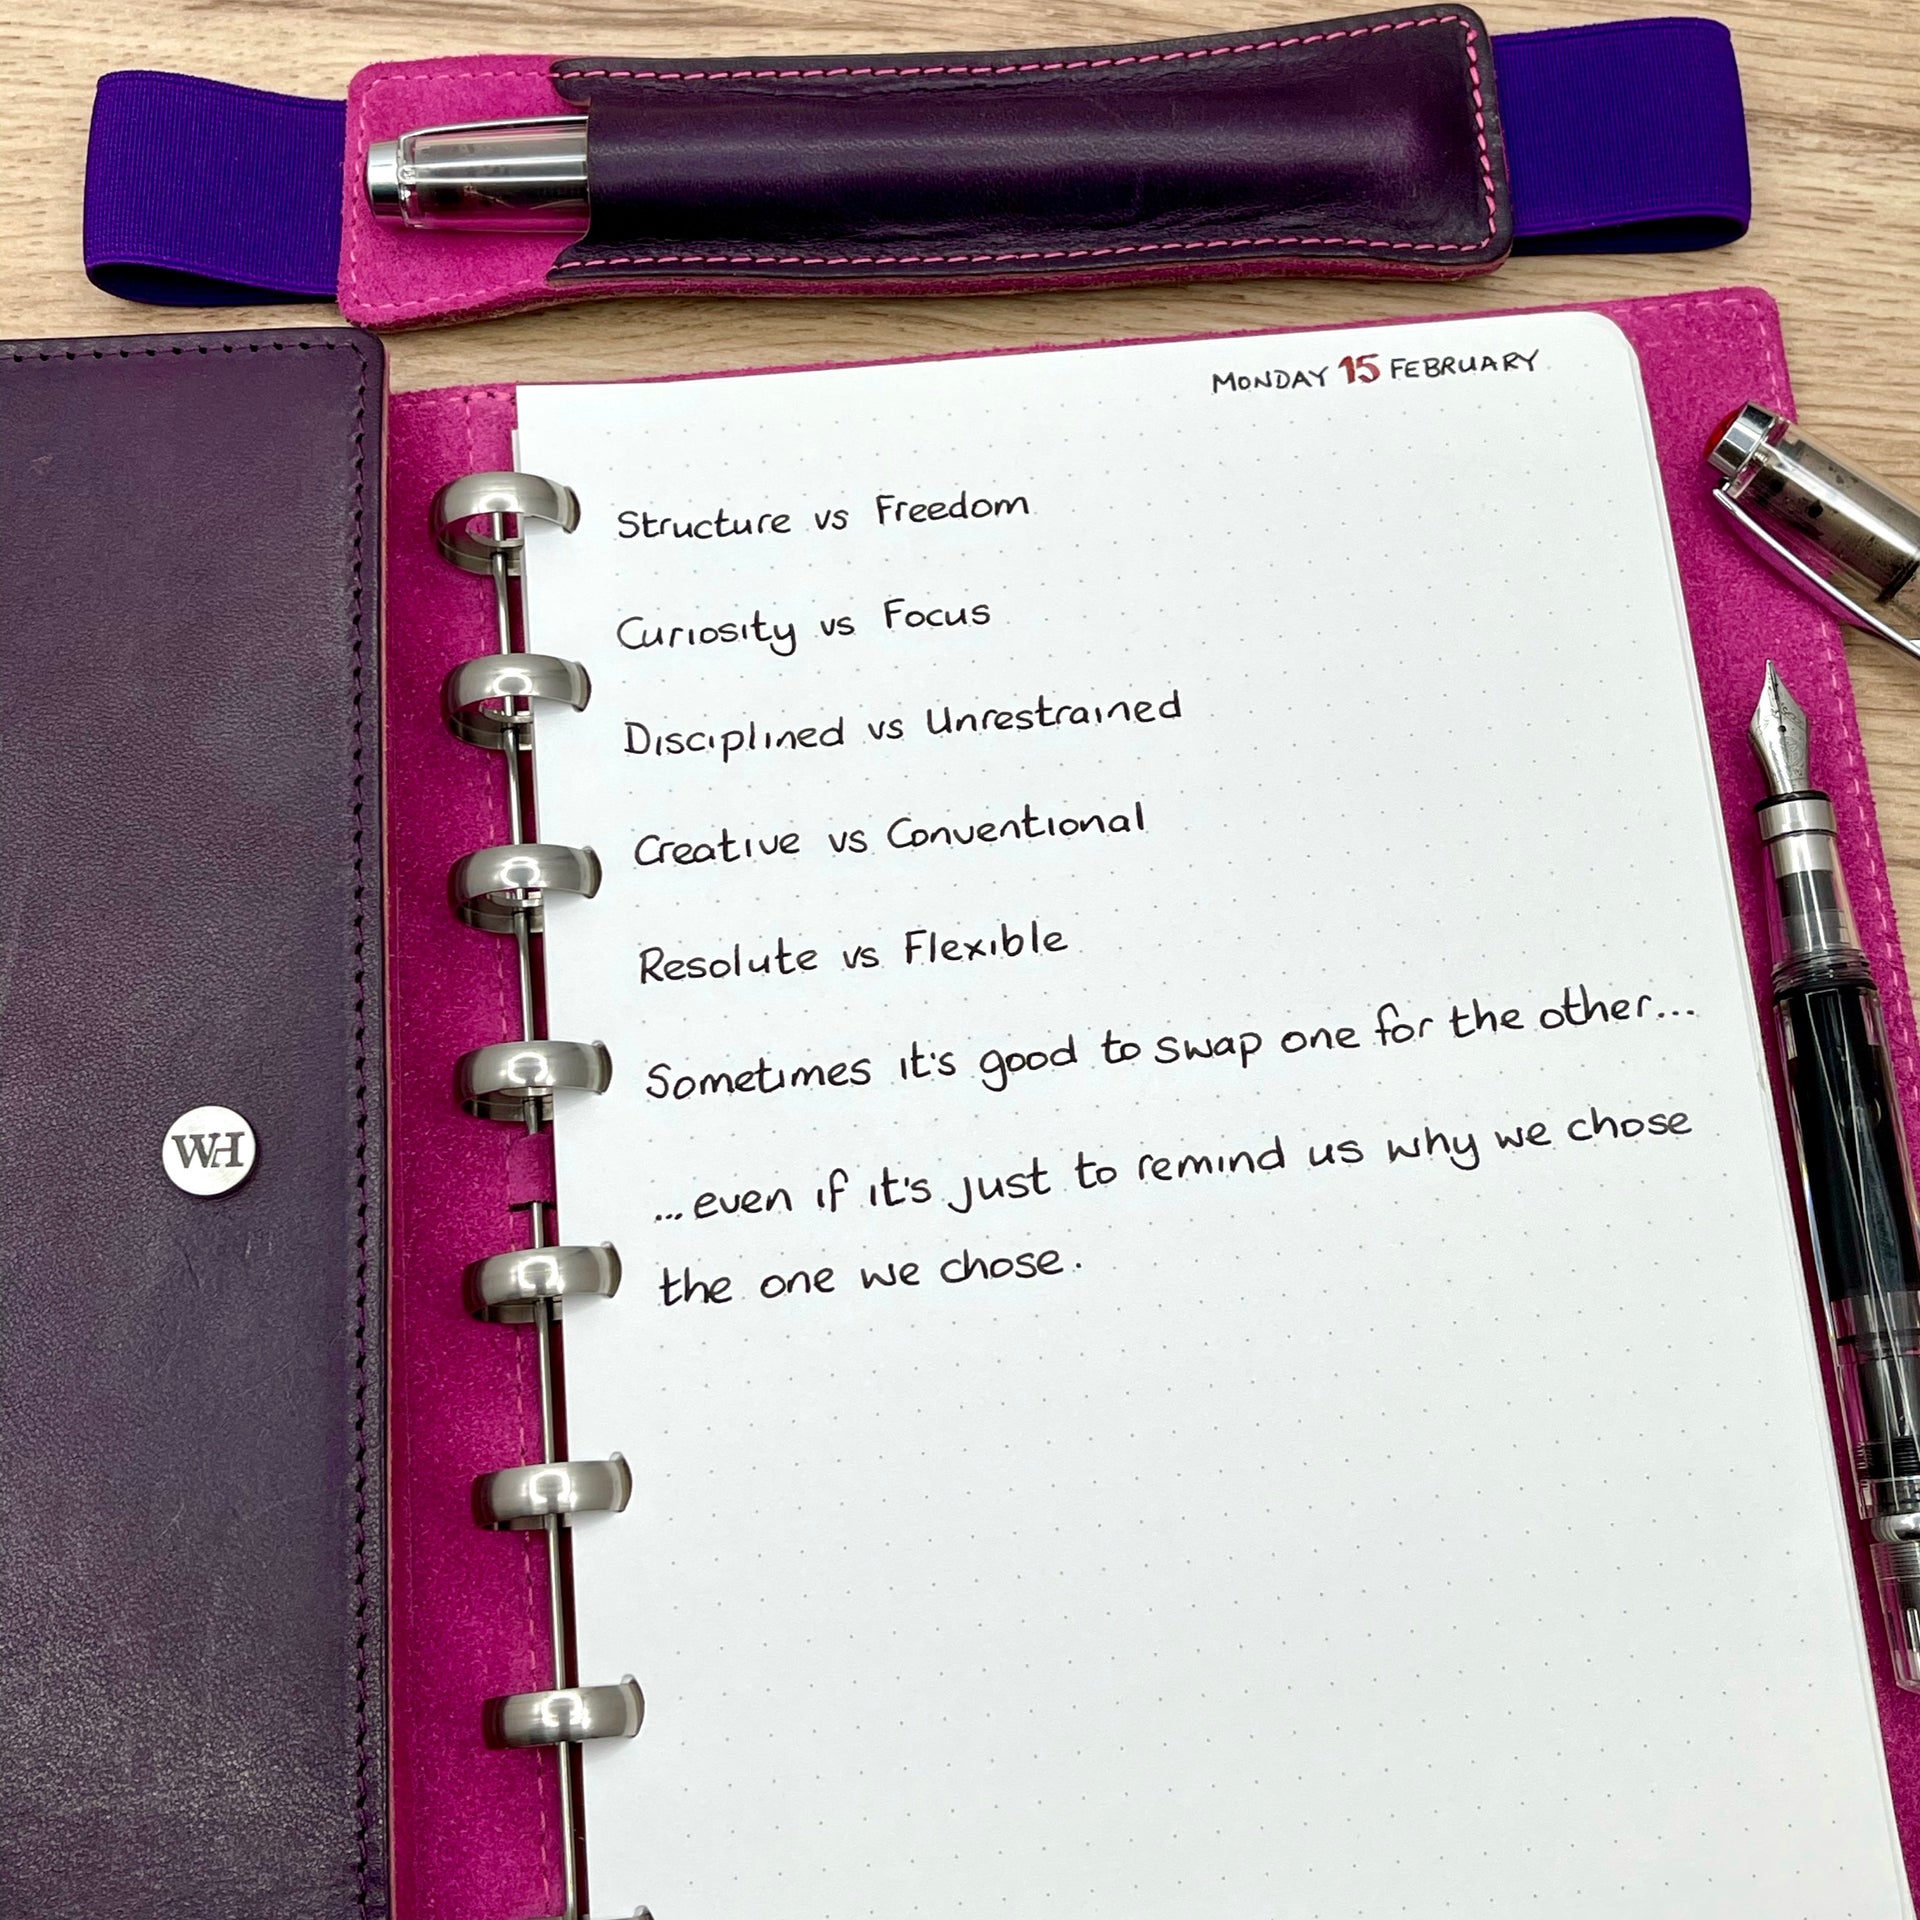 MONDAY 15 FEBRUARY
Structure vs Freedom
Curiosity vs Focus
Disciplined vs Unrestrained
Creative vs Conventional
Resolute vs Flexible
Sometimes it's good to swap one for the other...
...even if it's just to remind us why we chose
the one we chose.
WH